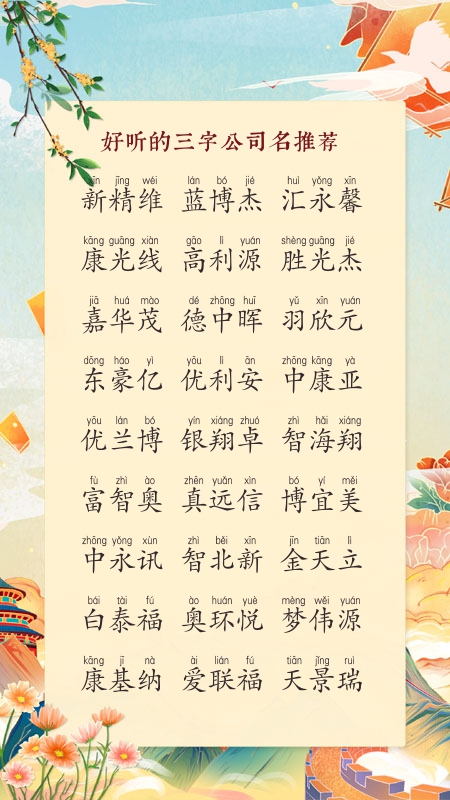 好听的三字公司名推荐
xīn jīng wéi lán bó jié huì yǒng xīn
新精维 蓝博杰 汇永馨
kāng guāng xiàn gāo lì yuán shèng guāng jié
康光线 高利源 胜光杰
jiā huá mào dé zhōng huī yǔ xīn yuán
嘉华茂 德中晖 羽欣元
dōng háo yì yōu lì ān zhōng kāng yà
东豪亿 优利安 中康亚
yōu lán bó yín xiáng zhuó zhì hǎi xiáng
优兰博 银翔卓 智海翔
fù zhì ào zhēn yuǎn xìn bó yí měi
富智奥 真远信 博宜美
zhōng yǒng xùn zhì běi xīn jīn tiān lì
中永讯 智北新 金天立
bái tài fú ào huán yuè mèng wěi yuán
白泰福 奥环悦 梦伟源
kāng jī nà ài lián fú tiān jǐng ruì
康基纳 爱联福 天景瑞